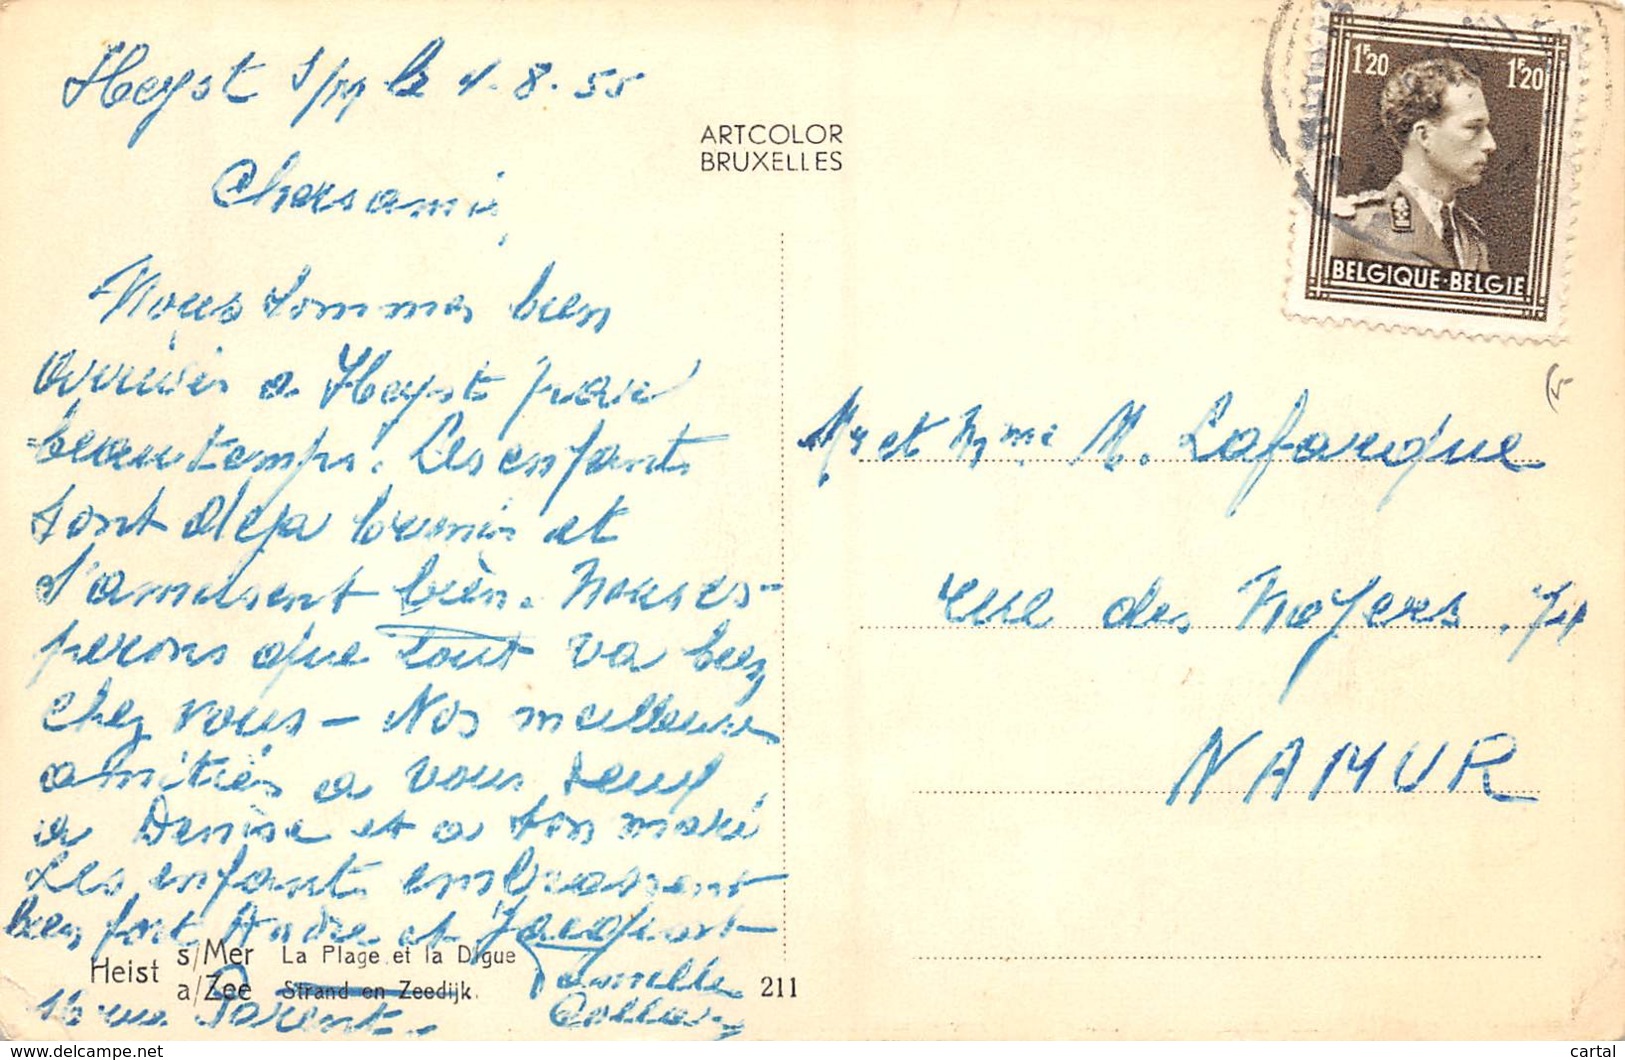 Heyst s/m le 1.8.55
Chers amis,
Nous sommes bien
arrivés a Heyst par
beau temps. Les enfants
sont deja brunis et
s'amusent bien. Nous es-
perons que tout va bien
chez vous - Nos meilleures
amitiés a vous deux
a Denise et a son mari
Les enfants embrassent
bien fort André et
Famille
16 rue Parent.
ARTCOLOR
BRUXELLES
1F20 1F20
BELGIQUE·BELGIE
Mr et Mme M. Lafarque
rue des Noyers.
NAMUR
Heist s/Mer La Plage et la Digue
a/Zee Strand en Zeedijk.
211
© delcampe.net
cartal